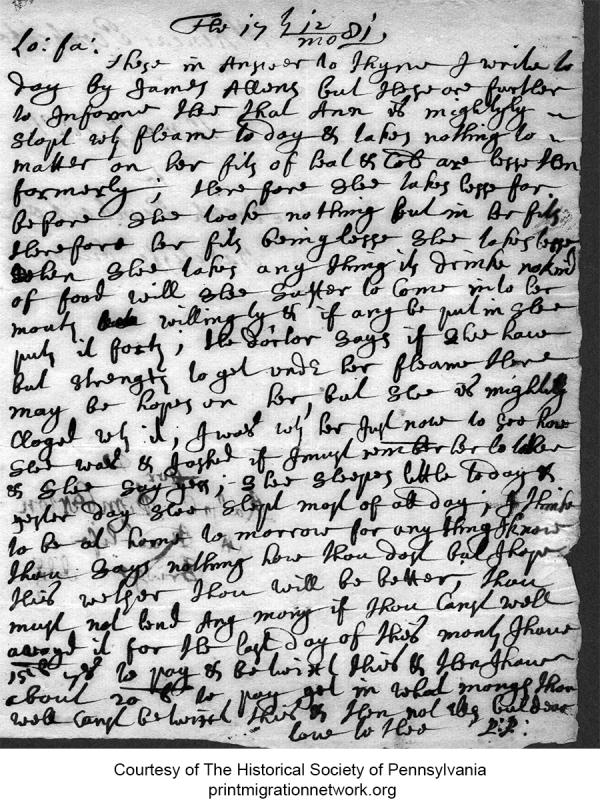 The 17th 12/mo 81
Lo: fa:
These in Answer to thyne I write to
day by James Allens but these are further
to Informe thee that Ann is mightyly
stopt wth fleame to day & takes nothing to
matter on her fits of heat & Cold are lesse then
formerly; therefore shee takes lesse for
before shee tooke nothing but in her fits
therefore her fits being lesse shee takes lesse
when shee takes any thing its drinke no kind
of food will shee suffer to Come into her
mouth willingly, & if any be put in shee
puts it forth; the doctor says if shee have
but strength to get under her fleame there
may be hopes on her, but shee is mightily
Cloged wth it, I was wth her Just now to see how
shee was & I asked if I must remember her to
& shee says yes; shee sleepes little to day &
yester day shee slept most of all day; I thinke
to be at home to morrow for any thing I know
thou says nothing how thou dost but I hope
this wether thou will be better, thou
must not lend Any mony if thou Canst well
avoyd it for the last day of this month I have
to pay & betwixt this & then I have
about 20 to pay get in what monys thou
well Canst betwixt this & then not els but dear
love to thee
Courtesy of The Historical Society of Pennsylvania
printmigrationnetwork.org